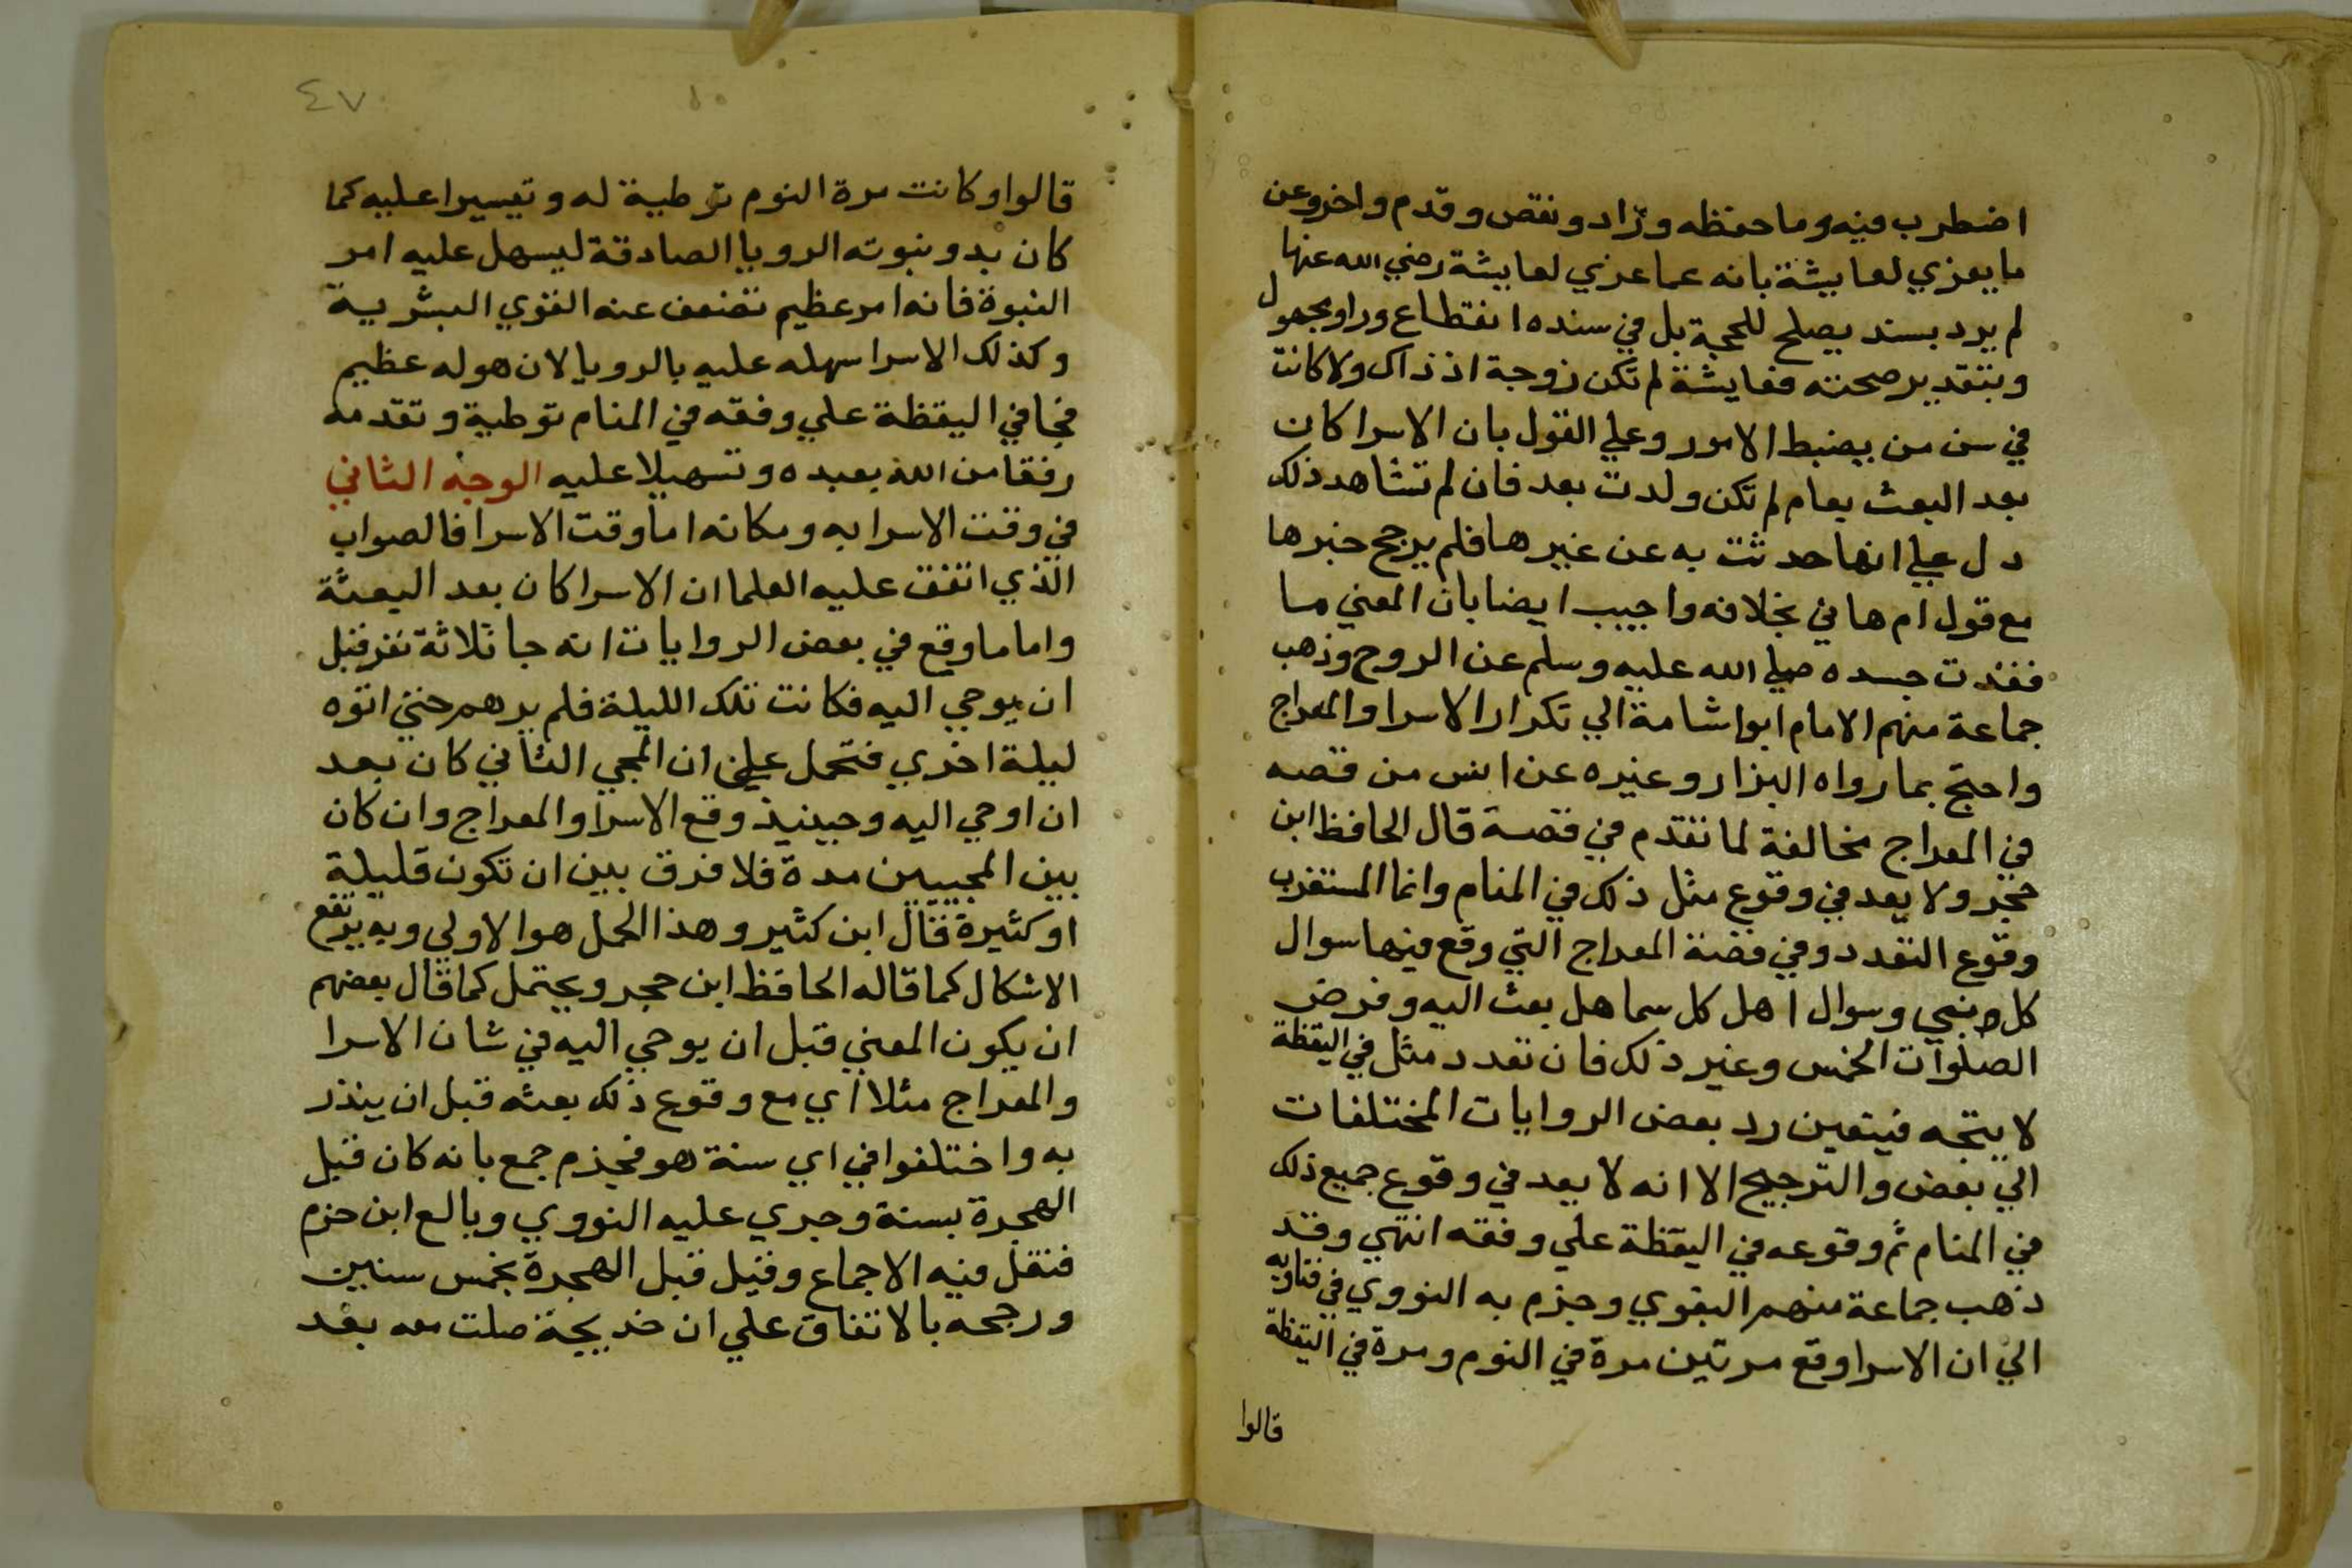 اضطرب فيه وما حفظه وزاد ونقص وقدم واخر وعن
ما يعزي لعايشة بانه عما عزي لعايشة رضي الله عنها
لم يرد بسند يصلح للحجة بل في سنده انقطاع وراو مجهول
وبتقدير صحته فعايشة لم تكن زوجة اذ ذاك ولا كانت
في سن من يضبط الامور وعلي القول بان الاسرا كان
بعد البعث بعام لم تكن ولدت بعد فان لم تشاهد ذلك
دل علي انها حدثت به عن غيرها فلم يرجح خبرها
مع قول ام هاني بخلافه واجيب ايضا بان المعني ما
فقدت جسده صلي الله عليه وسلم عن الروح وذهب
جماعة منهم الامام ابوا شامة الي تكرار الاسرا والمعراج
واحتج بما رواه البزار وغيره عن انس من قصه
في المعراج مخالفة لما تقدم في قصة قال الحافظ ابن
حجر ولا يعد في وقوع مثل ذلك في المنام وانما المستغرب
وقوع التعدد وفي قصة المعراج التي وقع فيها سوال
كل نبي وسوال اهل كل سما هل بعث اليه وفرض
الصلوات الخمس وغير ذلك فان تعدد مثل في اليقظة
لا يتجه فيتعين رد بعض الروايات المختلفات
الي بعض والترجيح الا انه لا يعد في وقوع جميع ذلك
في المنام ثم وقوعه في اليقظة علي وفقه انتهي وقد
ذهب جماعة منهم البغوي وجزم به النووي في فتاويه
الي ان الاسرا وقع مرتين مرة في النوم ومرة في اليقظة
قالوا
٤٧
قالوا وكانت مرة النوم توطية له وتيسيرا عليه كما
كان بدو نبوته الرويا الصادقة ليسهل عليه امر
النبوة فانه امر عظيم تضعف عنه القوي البشرية
وكذلك الاسرا سهله عليه بالرويا لان هوله عظيم
فجا في اليقظة علي وفقه في المنام توطية وتقدمه
رفقا من الله بعبده وتسهيلا عليه الوجه الثاني
في وقت الاسرا به ومكانه اما وقت الاسرا فالصواب
الذي اتفق عليه العلما ان الاسرا كان بعد البعثة
واما ما وقع في بعض الروايات انه جا ثلاثة نفر قبل
ان يوحي اليه فكانت تلك الليلة فلم يرهم حتي اتوه
ليلة اخري فتحمل علي ان المجي الثاني كان بعد
ان اوحي اليه وحينيذ وقع الاسرا والمعراج وان كان
بين المجييين مدة فلا فرق بين ان تكون قليلة
او كثيرة قال ابن كثير وهذا الحمل هو الاولي وبه يرتفع
الاشكال كما قاله الحافظ ابن حجر ويحتمل كما قال بعضهم
ان يكون المعني قبل ان يوحي اليه في شان الاسرا
والمعراج مثلا اي مع وقوع ذلك بعثه قبل ان ينذر
به واختلفوا في اي سنة هو فجزم جمع بانه كان قبل
الهجرة بسنة وجري عليه النووي وبالع ابن حزم
فنقل فيه الاجماع وقيل قبل الهجرة بخمس سنين
ورجحه بالاتفاق علي ان خديجة صلت معه بعد